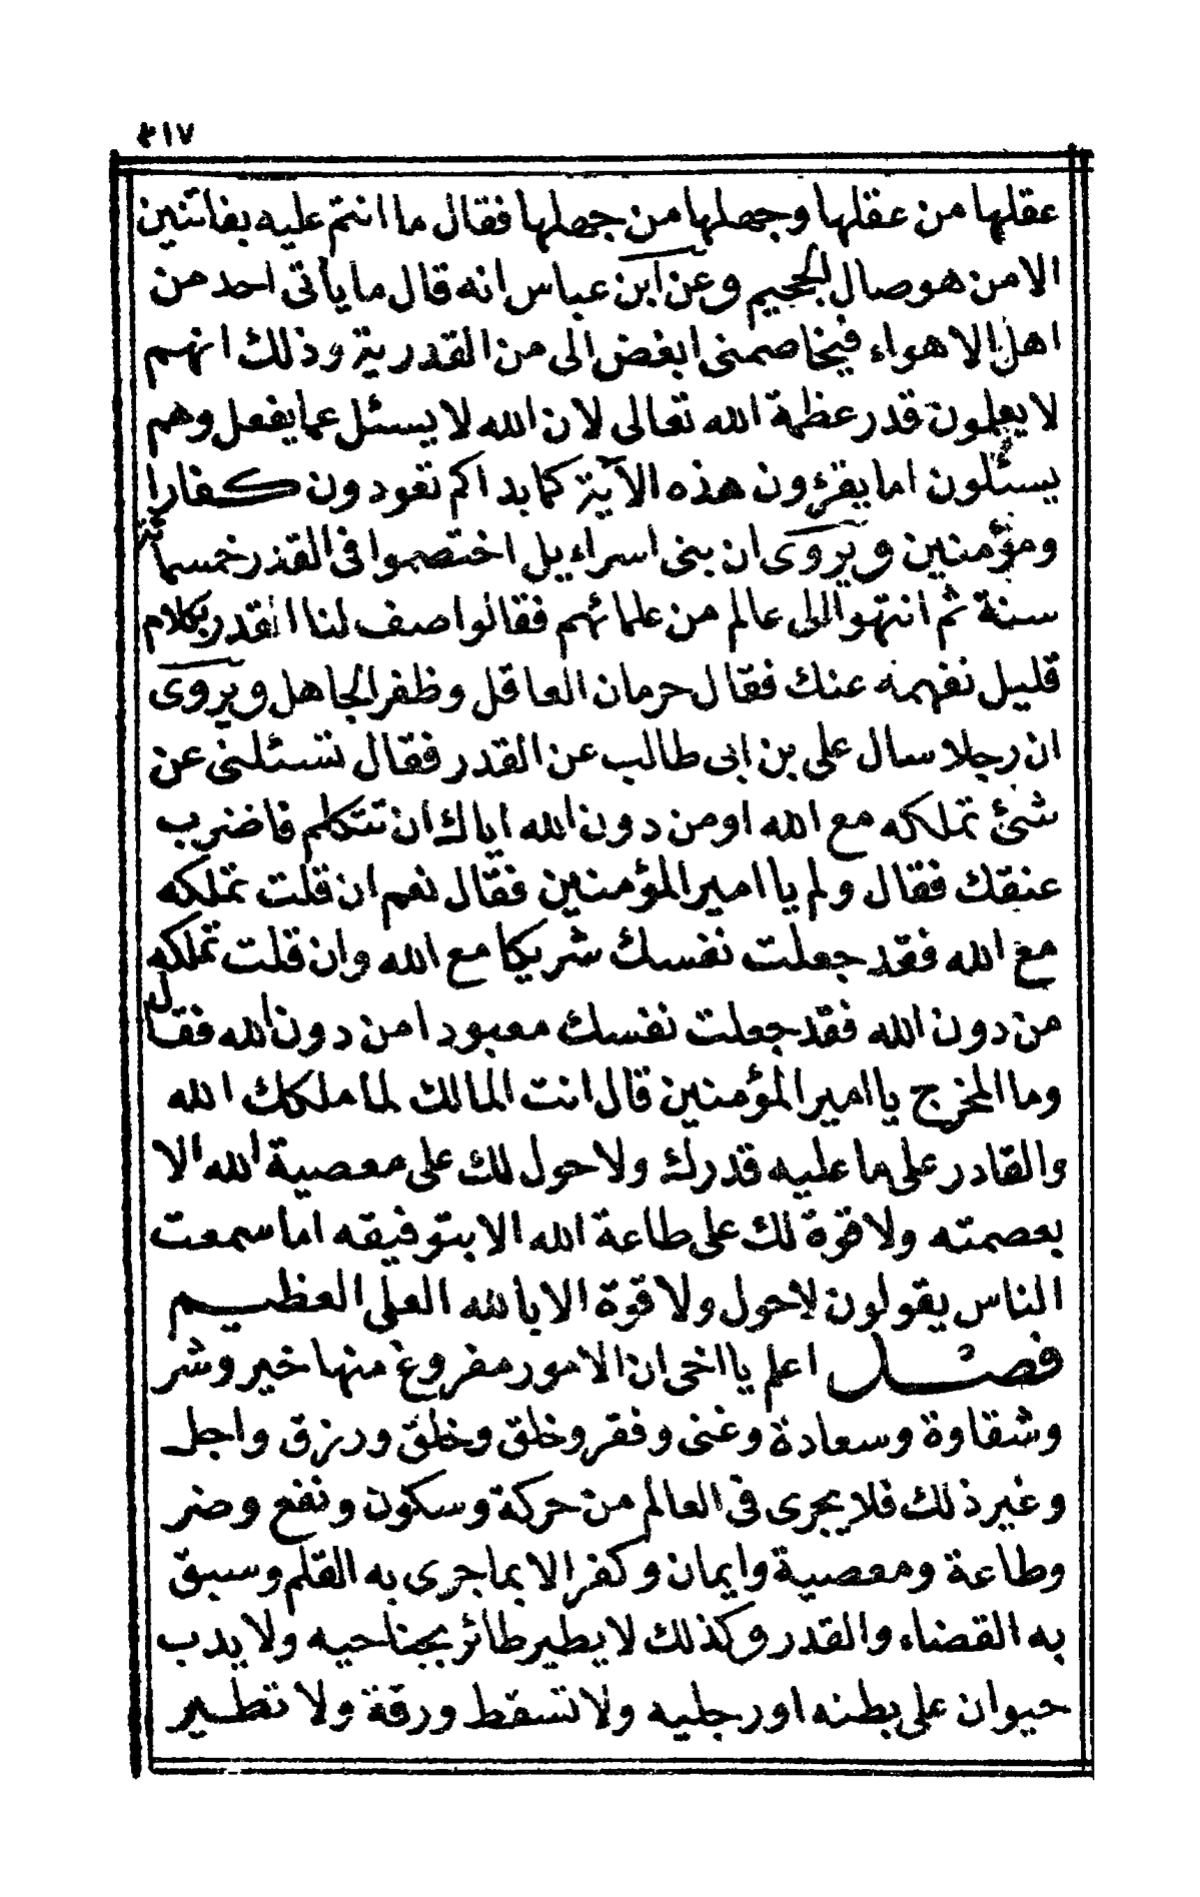 ٣١٧
عقلها من عقلها وجهلها من جهلها فقال ما انتم عليه بفاتنين
الا من هو صال الجحيم وعن ابن عباس انه قال ما يأتى احد من
اهل الاهواء فيخاصمنى ابغض الى من القدرية وذلك انهم
لا يعلمون قدر عظمة الله تعالى لان الله لا يسئل عما يفعل وهم
يسئلون اما يقرؤن هذه الآية كما بداكم تعودون كفارا
ومؤمنين ويروى ان بنى اسراءيل اختصموا فى القدر خمسمائة
سنة ثم انتهوا الى عالم من علمائهم فقالوا صف لنا القدر بكلام
قليل نفهمه عنك فقال حرمان العاقل وظفر الجاهل ويروى
ان رجلا سال على بن ابى طالب عن القدر فقال تسئلنى عن
شئ تملكه مع الله او من دون الله اياك ان تتكلم فاضرب
عنقك فقال ولم يا امير المؤمنين فقال نعم ان قلت تملكه
مع الله فقد جعلت نفسك شريكا مع الله وان قلت تملكه
من دون الله فقد جعلت نفسك معبودا من دون الله فقال
وما المخرج يا امير المؤمنين قال انت المالك لما ملكك الله
والقادر على ما عليه قدرك ولا حول لك على معصية الله الا
بعصمته ولا قوة لك على طاعة الله الا بتوفيقه اما سمعت
الناس يقولون لا حول ولا قوة الا بالله العلى العظيم
فصل اعلم يا اخى ان الامور مفروغ منها خير وشر
وشقاوة وسعادة وغنى وفقر وخلق وخلق ورزق واجل
وغير ذلك فلا يجرى فى العالم من حركة وسكون ونفع وضر
وطاعة ومعصية وايمان وكفر الا بما جرى به القلم وسبق
به القضاء والقدر وكذلك لا يطير طائر بجناحيه ولا يدب
حيوان على بطنه او رجليه ولا تسقط ورقة ولا تطير